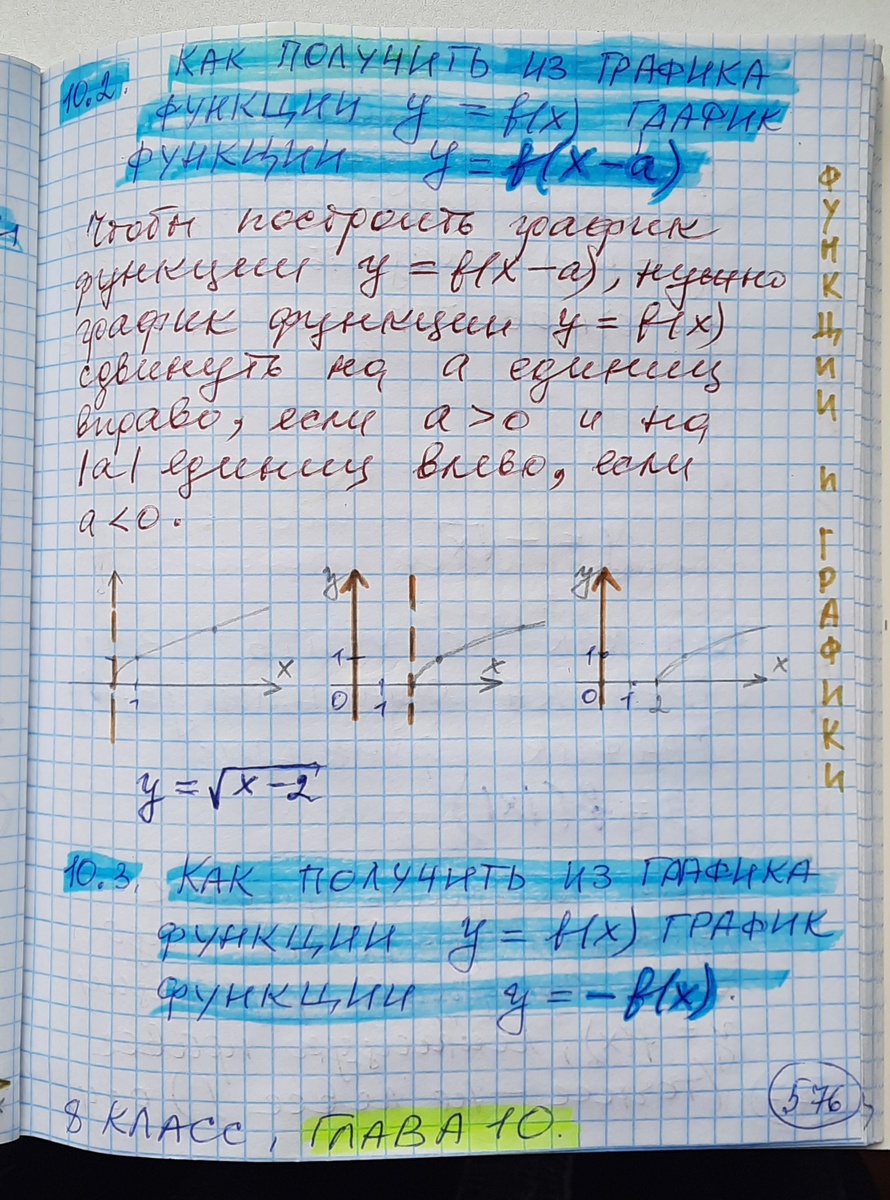 10.2. КАК ПОЛУЧИТЬ ИЗ ГРАФИКА
ФУНКЦИИ y = f(x) ГРАФИК
ФУНКЦИИ y = f(x-a)
Чтобы построить график
функции y = f(x-a), нужно
график функции y = f(x)
сдвинуть на a единиц
вправо, если a > 0 и на
|a| единиц влево, если
a < 0.
1 x
y 1 0 1 x
y 1 0 1 2 x
y = √x-2
10.3. КАК ПОЛУЧИТЬ ИЗ ГРАФИКА
ФУНКЦИИ y = f(x) ГРАФИК
ФУНКЦИИ y = -f(x).
8 КЛАСС, ГЛАВА 10.
576
ФУНКЦИИ И ГРАФИКИ